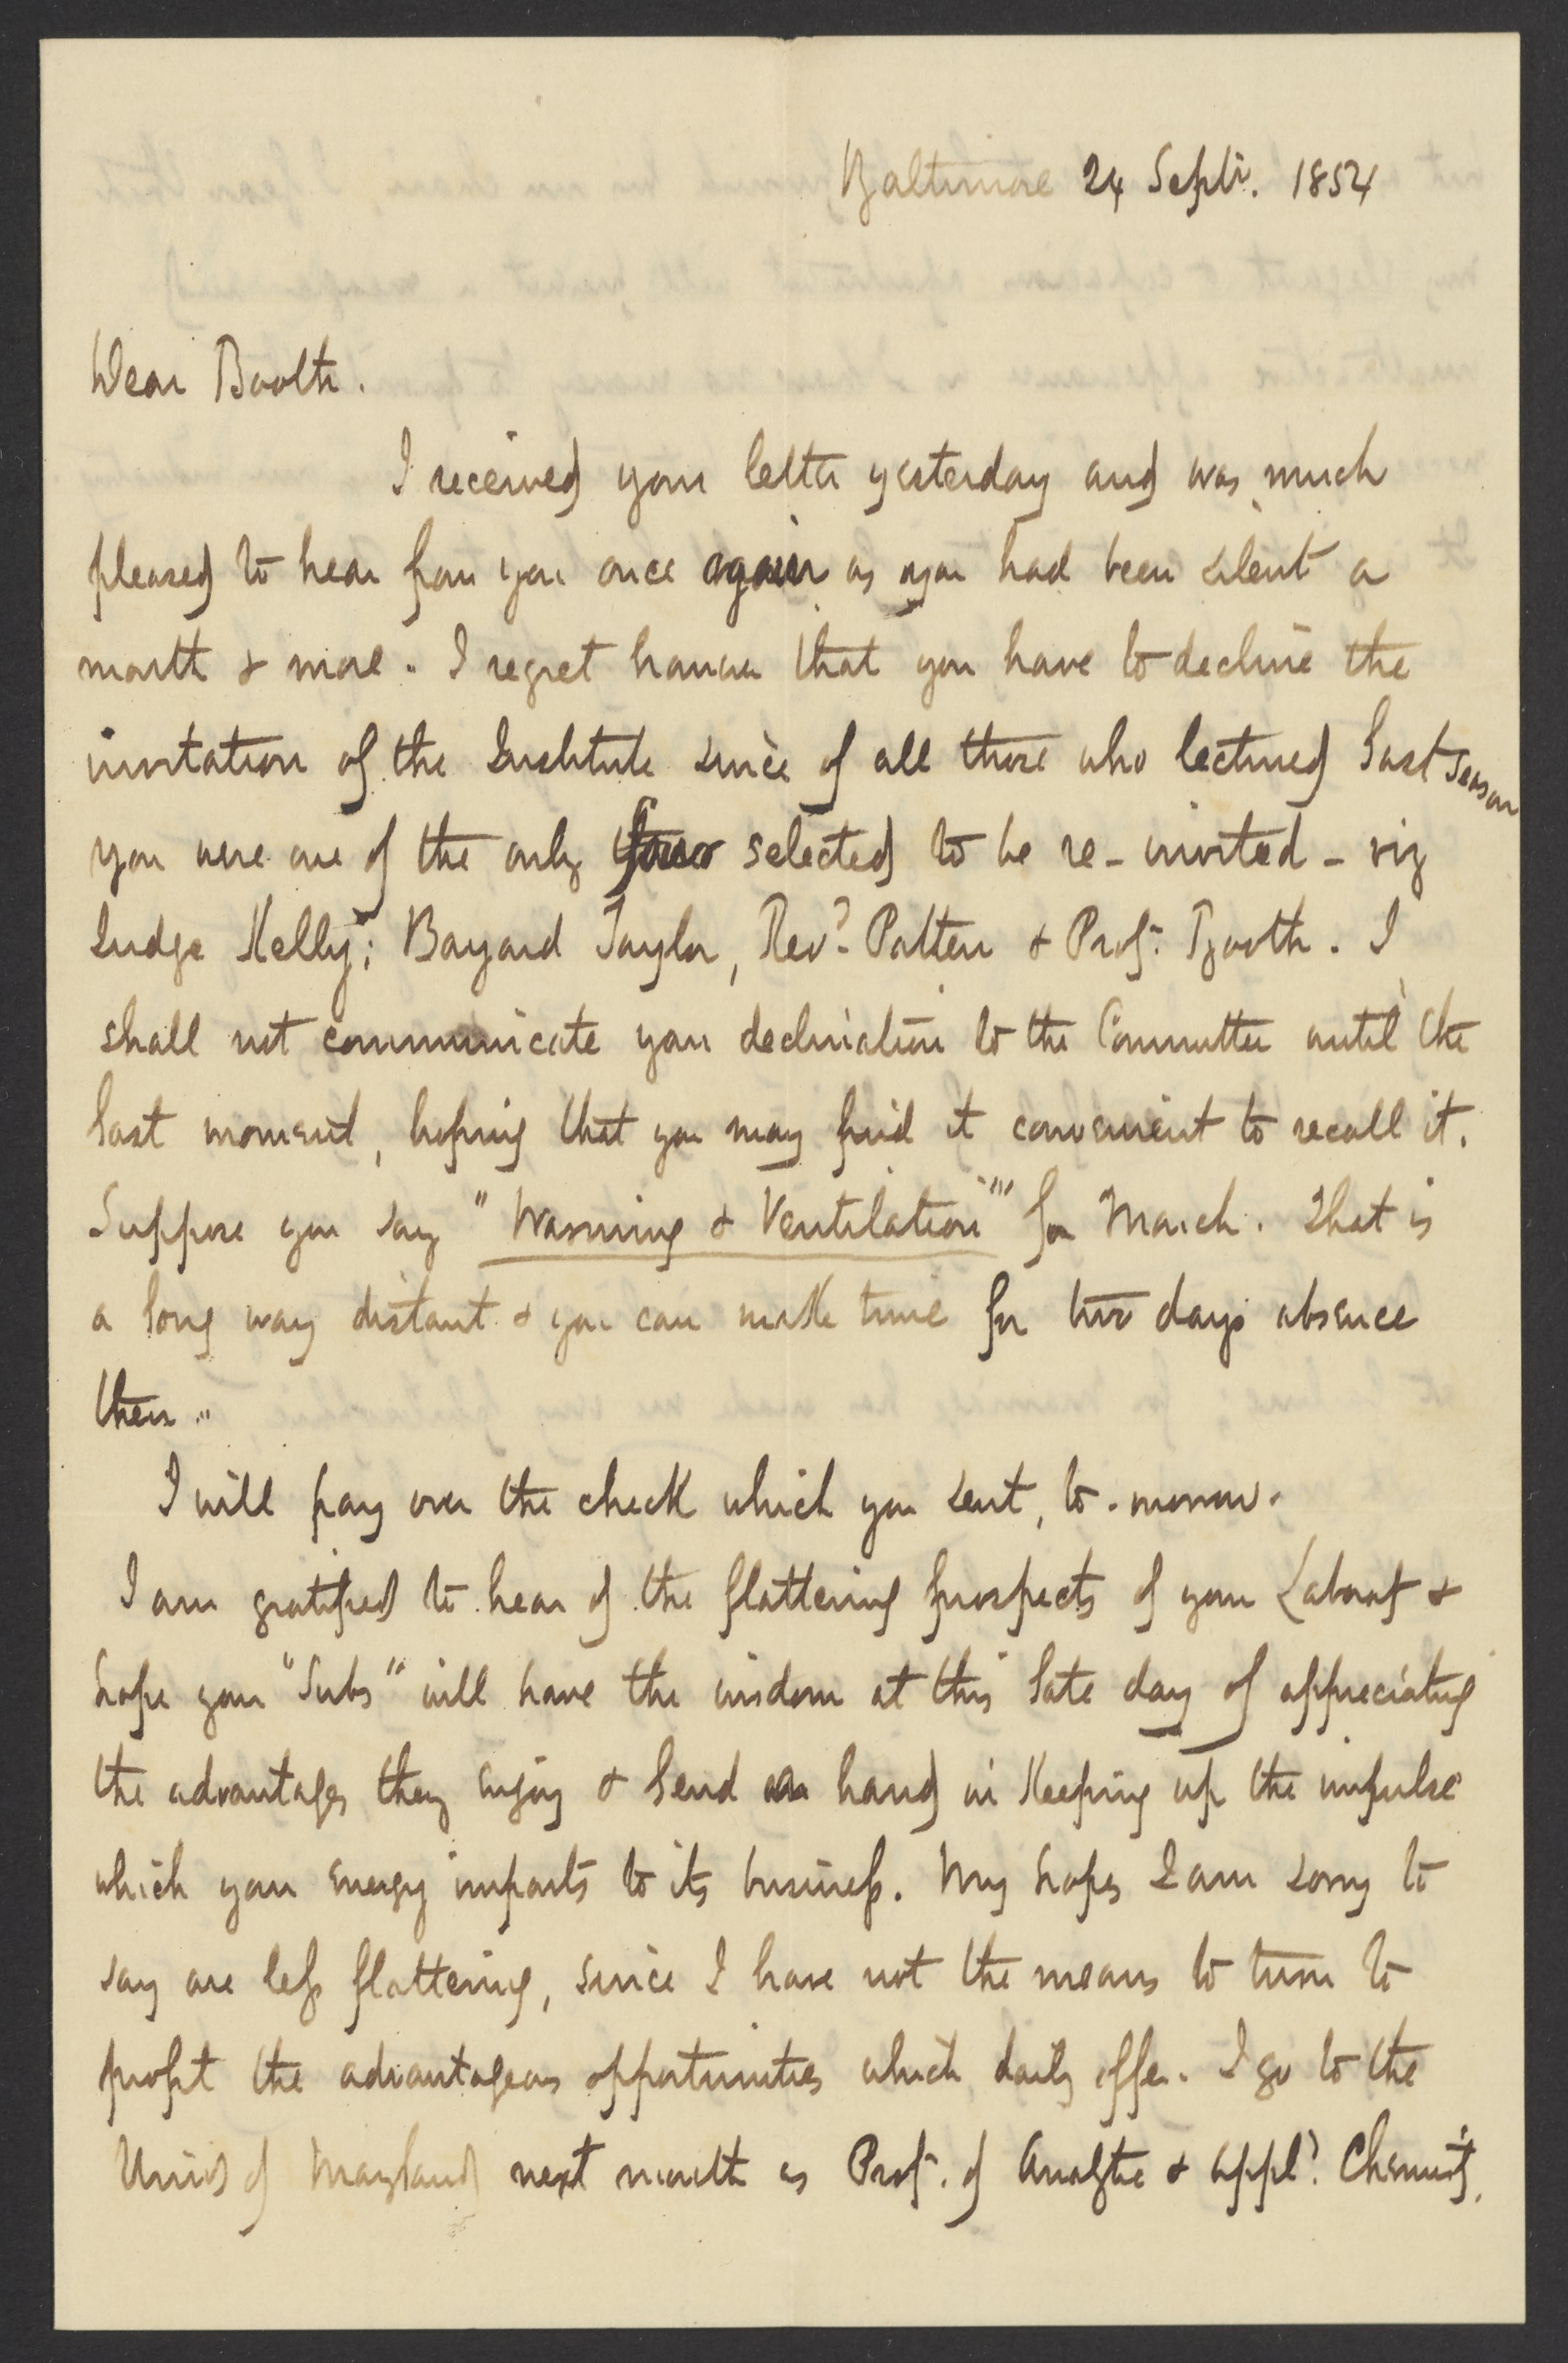 Baltimore 24 Septr. 1854
Dear Booth.
I received your letter yesterday and was much
pleased to hear from you once again as you had been silent a
month & more. I regret however that you have to decline the
invitation of the Institute since of all those who lectured last season
you were one of the only four selected to be re-invited - viz
Judge Kelly; Bayard Taylor, Revd. Patten & Prof. Booth. I
shall not communicate your declination to the Committee until the
last moment, hoping that you may find it convenient to recall it.
Suppose you say "Warming & Ventilation" for March. That is
a long way distant & you can make time for two days absence
then.
I will pay over the check which you sent, to-morrow.
I am gratified to hear of the flattering prospects of your Laboraty &
hope your "Subs" will have the wisdom at this late day of appreciating
the advantages they enjoy & lend a hand in keeping up the impulse
which your energy imparts to its business. My hopes I am sorry to
say are less flattering, since I have not the means to turn to
profit the advantageous opportunities which daily offer. I go to the
Univy of Maryland next month as Prof. of Analytic & Appld. Chemisty.